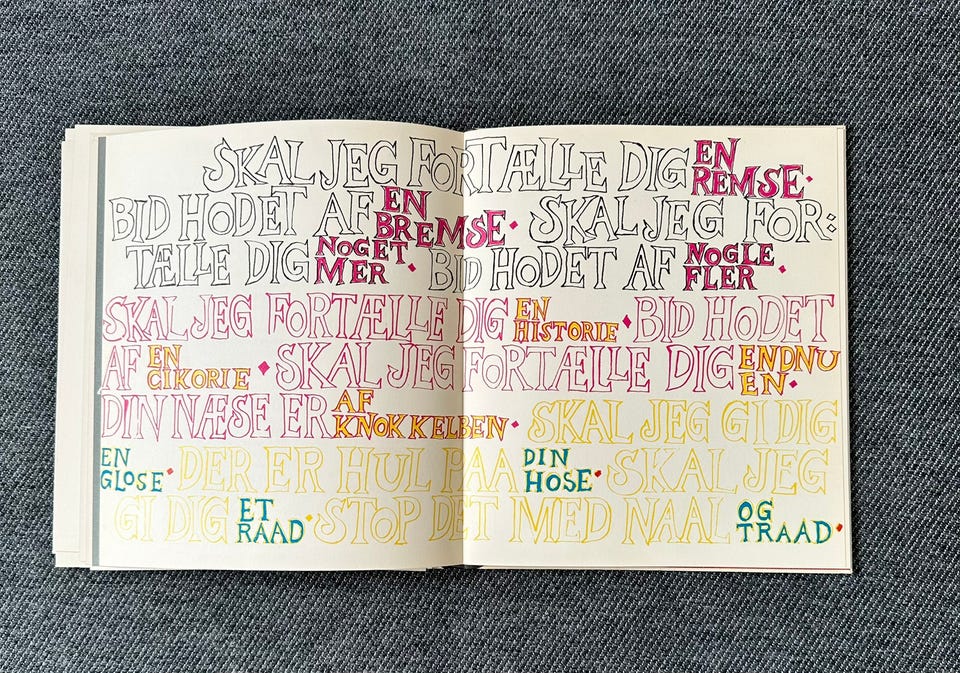 SKAL JEG FORTÆLLE DIG EN REMSE·
BID HODET AF EN BREMSE· SKAL JEG FOR:
TÆLLE DIG NOGET MER · BID HODET AF NOGLE FLER ·
SKAL JEG FORTÆLLE DIG EN HISTORIE · BID HODET
AF EN CIKORIE · SKAL JEG FORTÆLLE DIG ENDNU EN·
DIN NÆSE ER AF KNOKKELBEN· SKAL JEG GI DIG
EN GLOSE· DER ER HUL PAA DIN HOSE· SKAL JEG
GI DIG ET RAAD· STOP DET MED NAAL OG TRAAD·